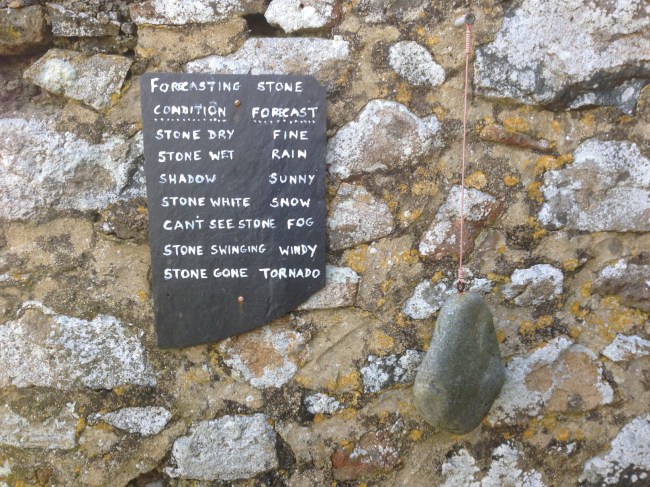 FORECASTING STONE
CONDITION FORECAST
STONE DRY FINE
STONE WET RAIN
SHADOW SUNNY
STONE WHITE SNOW
CAN'T SEE STONE FOG
STONE SWINGING WINDY
STONE GONE TORNADO